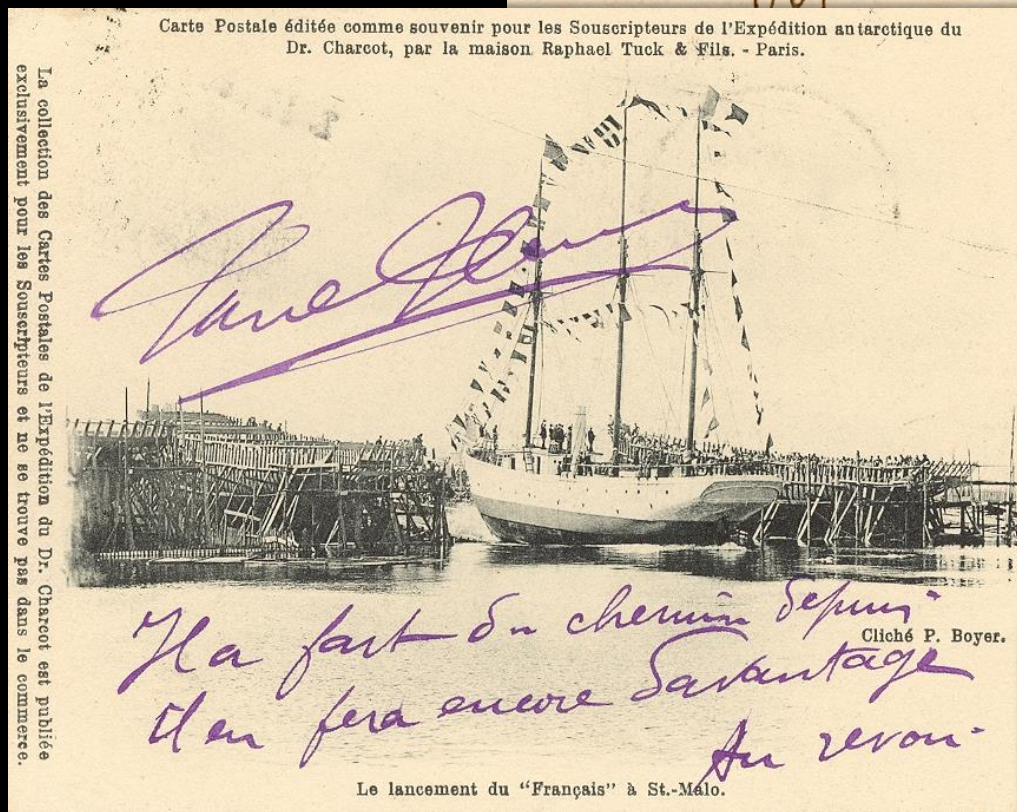 Carte Postale éditée comme souvenir pour les Souscripteurs de l'Expédition antarctique du
Dr. Charcot, par la maison Raphael Tuck & Fils. - Paris.
La collection des Cartes Postales de l'Expédition du Dr. Charcot est publiée
exclusivement pour les Souscripteurs et ne se trouve pas dans le commerce.
Il a fait du chemin depuis
Cliché P. Boyer.
il en fera encore davantage
Au revoir
Le lancement du "Français" à St.-Malo.